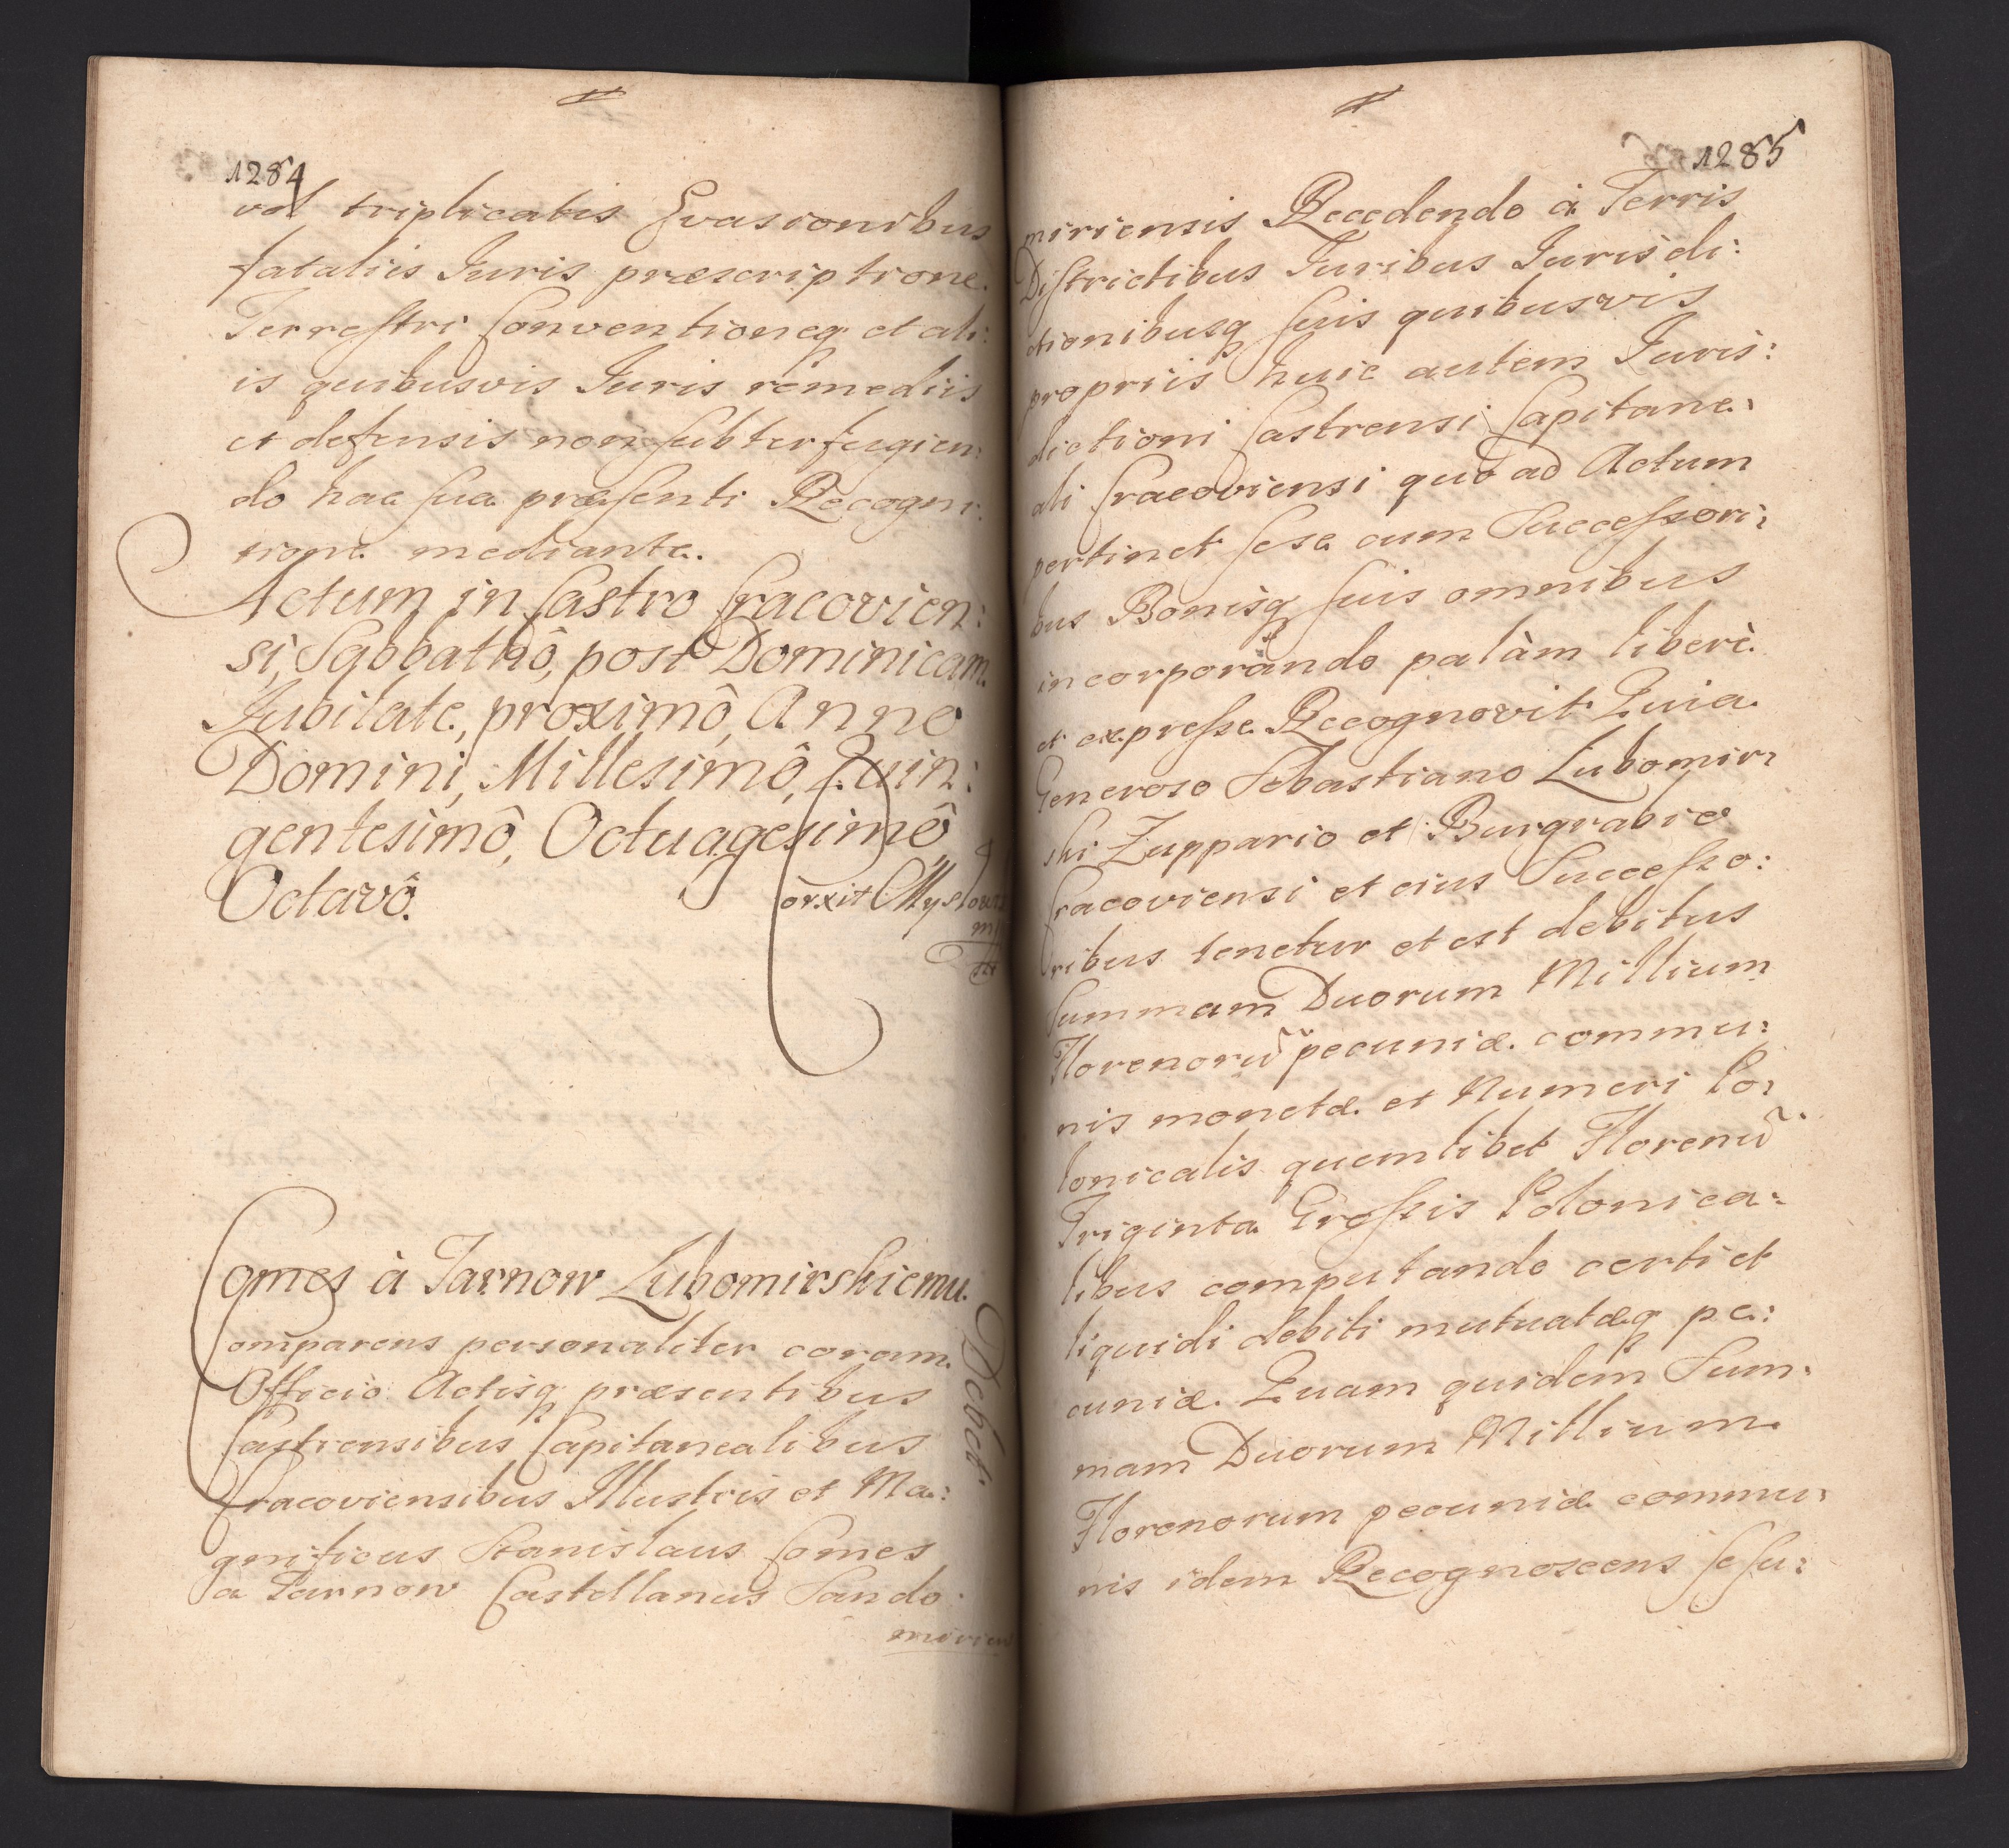 1284
vel triplicatis Evasionibus
fataliis Iuris præscriptione
Terrestri Conventioneq et ali:
is quibusvis Iuris remediis
et defensis non subterfugien:
do hac sua præsenti Recogni:
tione mediante.
Actum in Castro Cracovien:
si, Sabbathô, post Dominicam
Jubilate, proximô, Anno
Domini, Millesimô, Quin:
gentesimô, Octuagesimô
Octavô.
Corxit
Comes à Tarnow Lubomirskiemu.
Debet
Comparens personaliter coram
Officio Actisq præsentibus
Castrensibus Capitanealibus
Cracoviensibus Illustris et Ma:
gnificus Stanislaus Comes
a Tarnow Castellanus Sando:
mirien
1285
miriensis Recedendo à Terris
Districtibus Iuribus Iurisdi:
ctionibusq suis quibusvis
propriis huic autem Iuris:
dictioni Castrensi Capitane:
ali Cracoviensi quo ad Actum
pertinet sese cum Successori:
bus Bonisq suis omnibus
incorporando palàm liberè
et expresse Recognovit Quia
Generoso Sebastiano Lubomir:
ski Zuppario et Burgrabio
Cracoviensi et eius Successo:
ribus tenetur et est debitus
Summam Duorum Millium
Florenorũ pecuniæ commu:
nis monetæ et Numeri Po:
lonicalis quemlibet Florenũ
Triginta Grossis Polonica:
libus computando certi et
liquidi debiti mutuatæq pe:
cuniæ. Quam quidem Sum:
mam Duorum Millium
Florenorum pecuniæ commu:
nis idem Recognoscens se su: